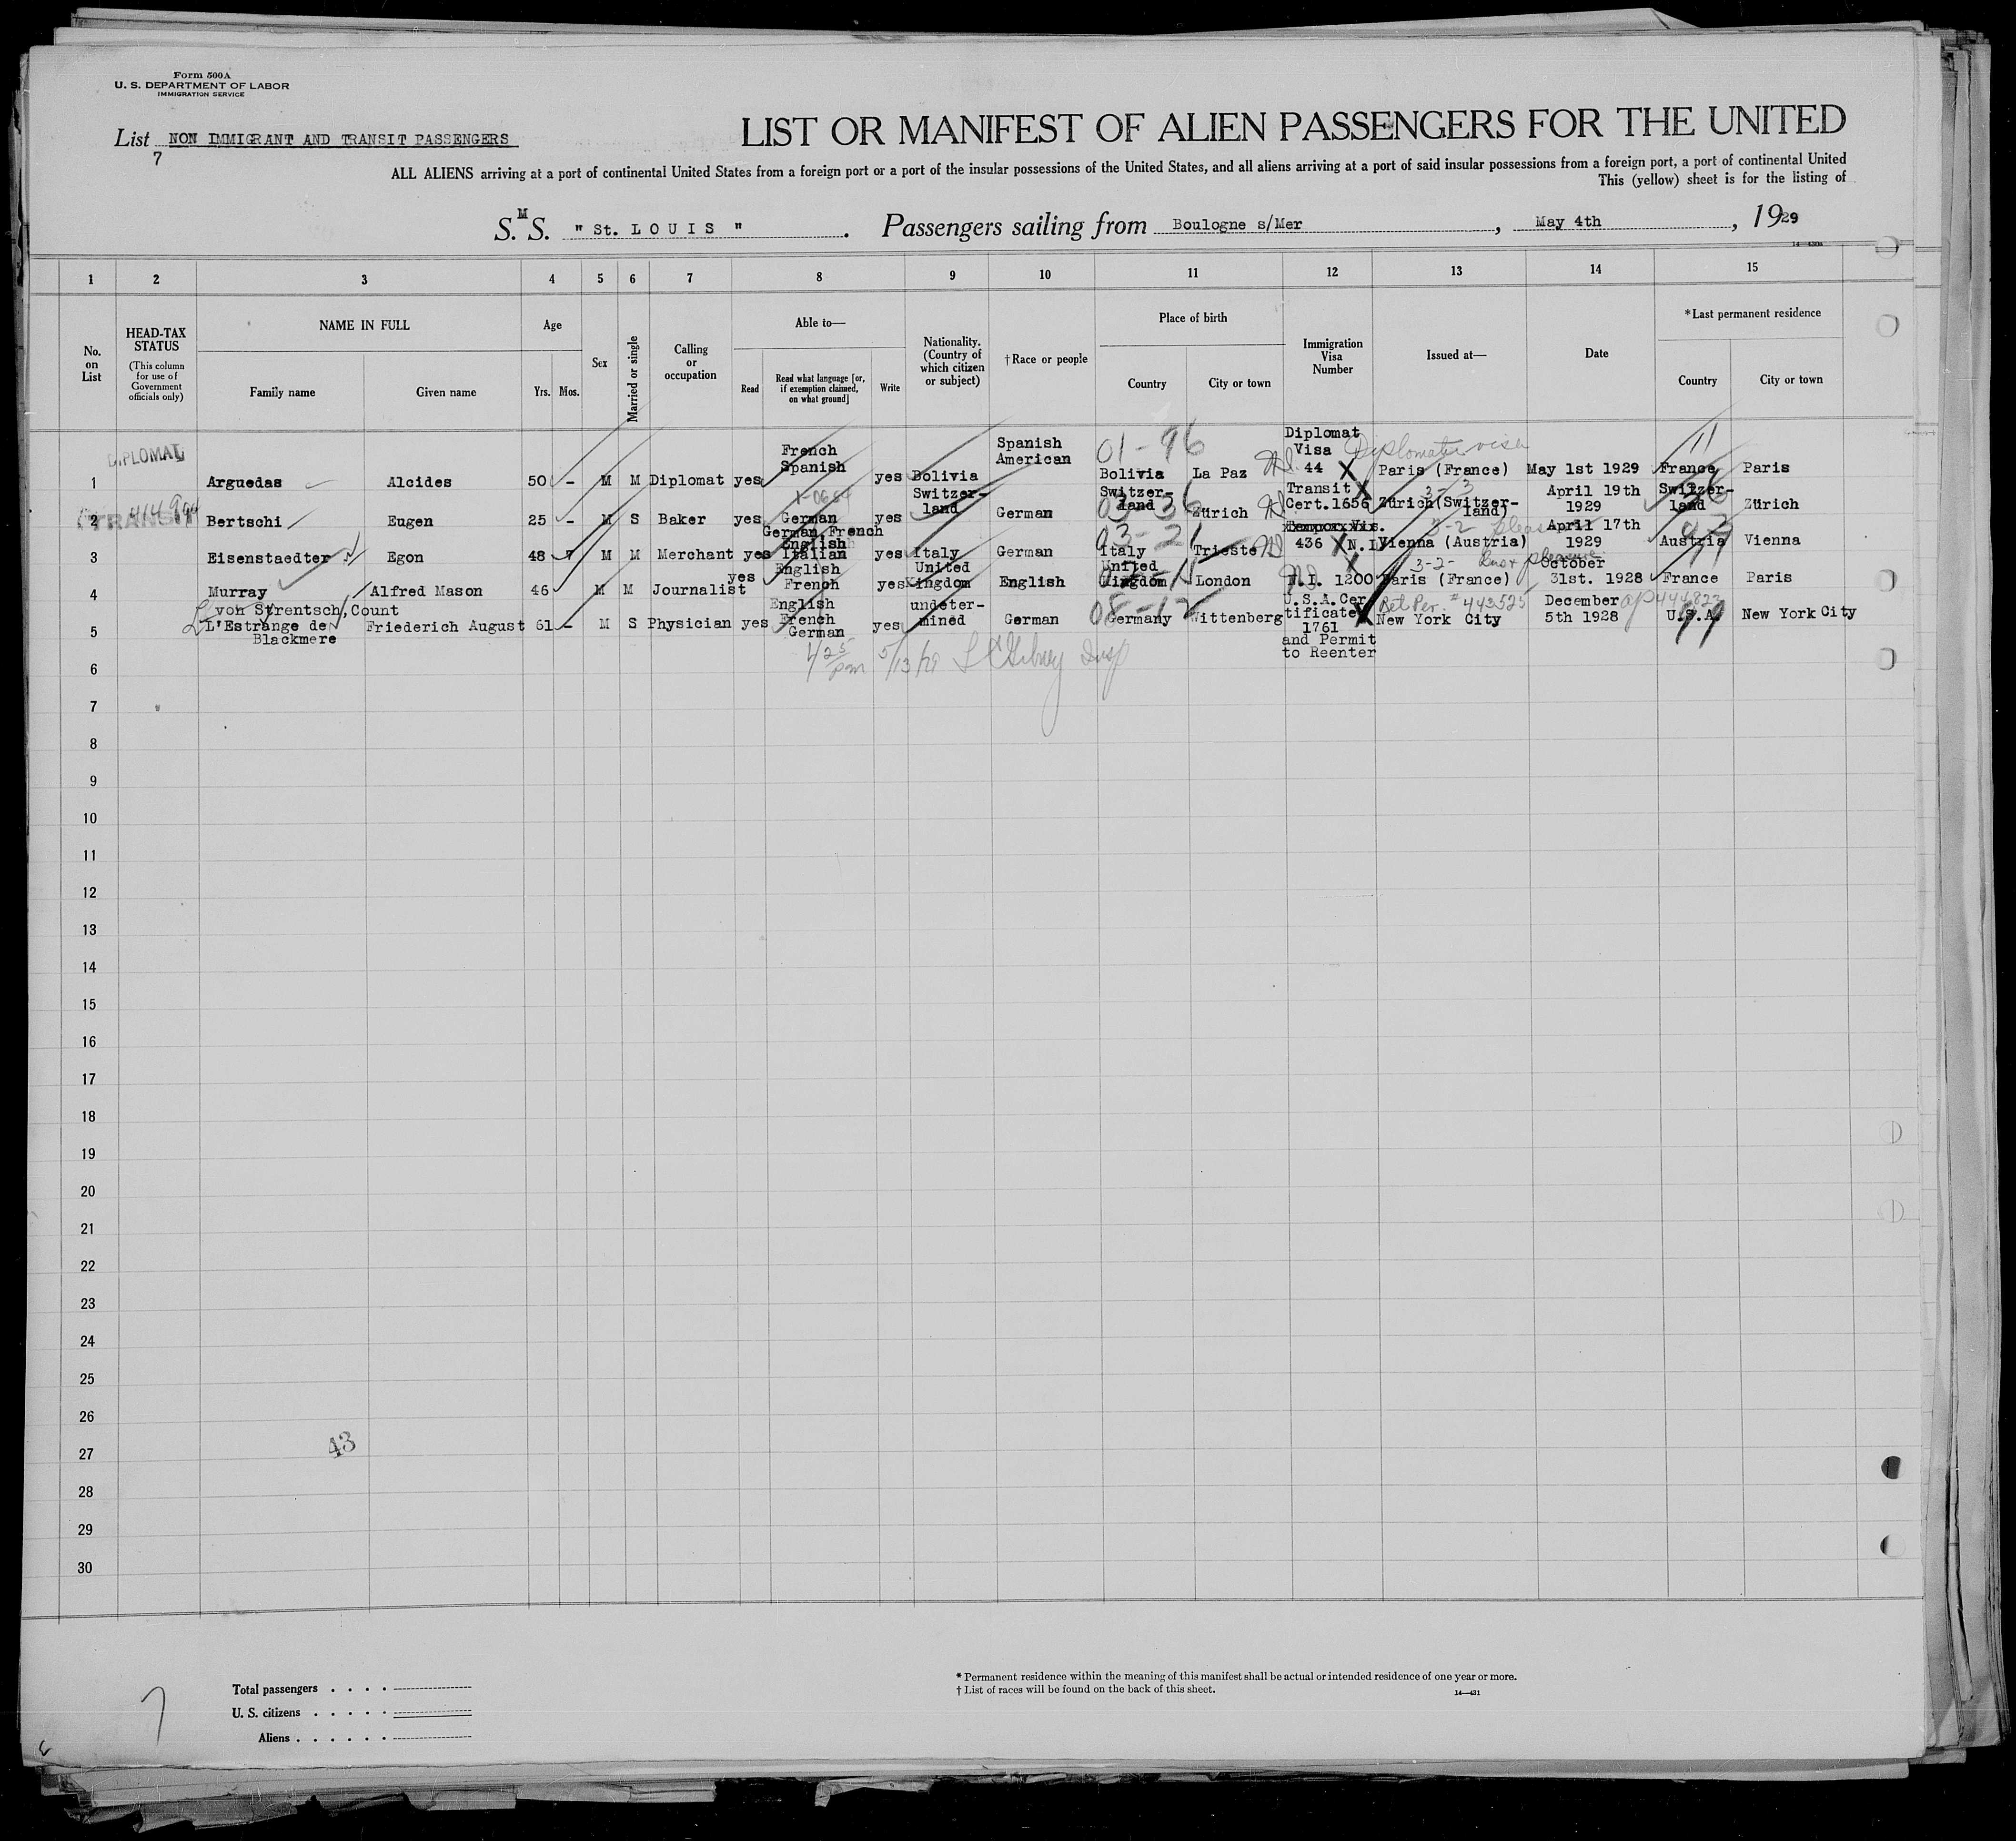 Form 500A
U. S. DEPARTMENT OF LABOR
IMMIGRATION SERVICE
List NON IMMIGRANT AND TRANSIT PASSENGERS
7
LIST OR MANIFEST OF ALIEN PASSENGERS FOR THE UNITED
ALL ALIENS arriving at a port of continental United States from a foreign port or a port of the insular possessions of the United States, and all aliens arriving at a port of said insular possessions from a foreign port, a port of continental United
This (yellow) sheet is for the listing of
S.M S. " St. LOUIS ". Passengers sailing from Boulogne s/Mer, May 4th, 1929
14—430a
1 2 3 4 5 6 7 8 9 10 11 12 13 14 15
No. on List
HEAD-TAX STATUS
(This column for use of Government officials only)
NAME IN FULL
Family name Given name
Age
Yrs. Mos.
Sex
Married or single
Calling or occupation
Able to—
Read Read what language [or, if exemption claimed, on what ground] Write
Nationality. (Country of which citizen or subject)
†Race or people
Place of birth
Country City or town
Immigration Visa Number
Issued at—
Date
*Last permanent residence
Country City or town
1 DIPLOMAT Arguedas Alcides 50 - M M Diplomat yes French Spanish yes Bolivia Spanish American 01-96 Bolivia La Paz Diplomat Visa 44 Diplomatic visa Paris (France) May 1st 1929 France 11 Paris
2 TRANSIT Bertschi Eugen 25 - M S Baker yes German yes Switzer-land German Switzer-land Zürich Transit Cert.1656 3-3 Zürich (Switzer-land) April 19th 1929 Switzer-land Zürich
3 Eisenstaedter Egon 48 7 M M Merchant yes German, French English Italian yes Italy German 03-21 Italy Trieste 436 N.I. 3-2 Vienna (Austria) April 17th 1929 Austria Vienna
4 Murray Alfred Mason 46 M M Journalist yes English French yes United Kingdom English United Kingdom London N.I. 1200 3-2- Paris (France) October 31st. 1928 France Paris
5 von Strentsch, Count L'Estrange de Blackmere Friederich August 61 - M S Physician yes English French German yes undeter-mined German 08-12 Germany Wittenberg U.S.A.Cer tificate 1761 and Permit to Reenter Ret Per. #443525 New York City December 5th 1928 U.S.A. 99 New York City
5/13/29
6
7
8
9
10
11
12
13
14
15
16
17
18
19
20
21
22
23
24
25
26
27
28
29
30
43
7
Total passengers . . . .
U. S. citizens . . . . .
Aliens . . . . . .
* Permanent residence within the meaning of this manifest shall be actual or intended residence of one year or more.
† List of races will be found on the back of this sheet.
14—431